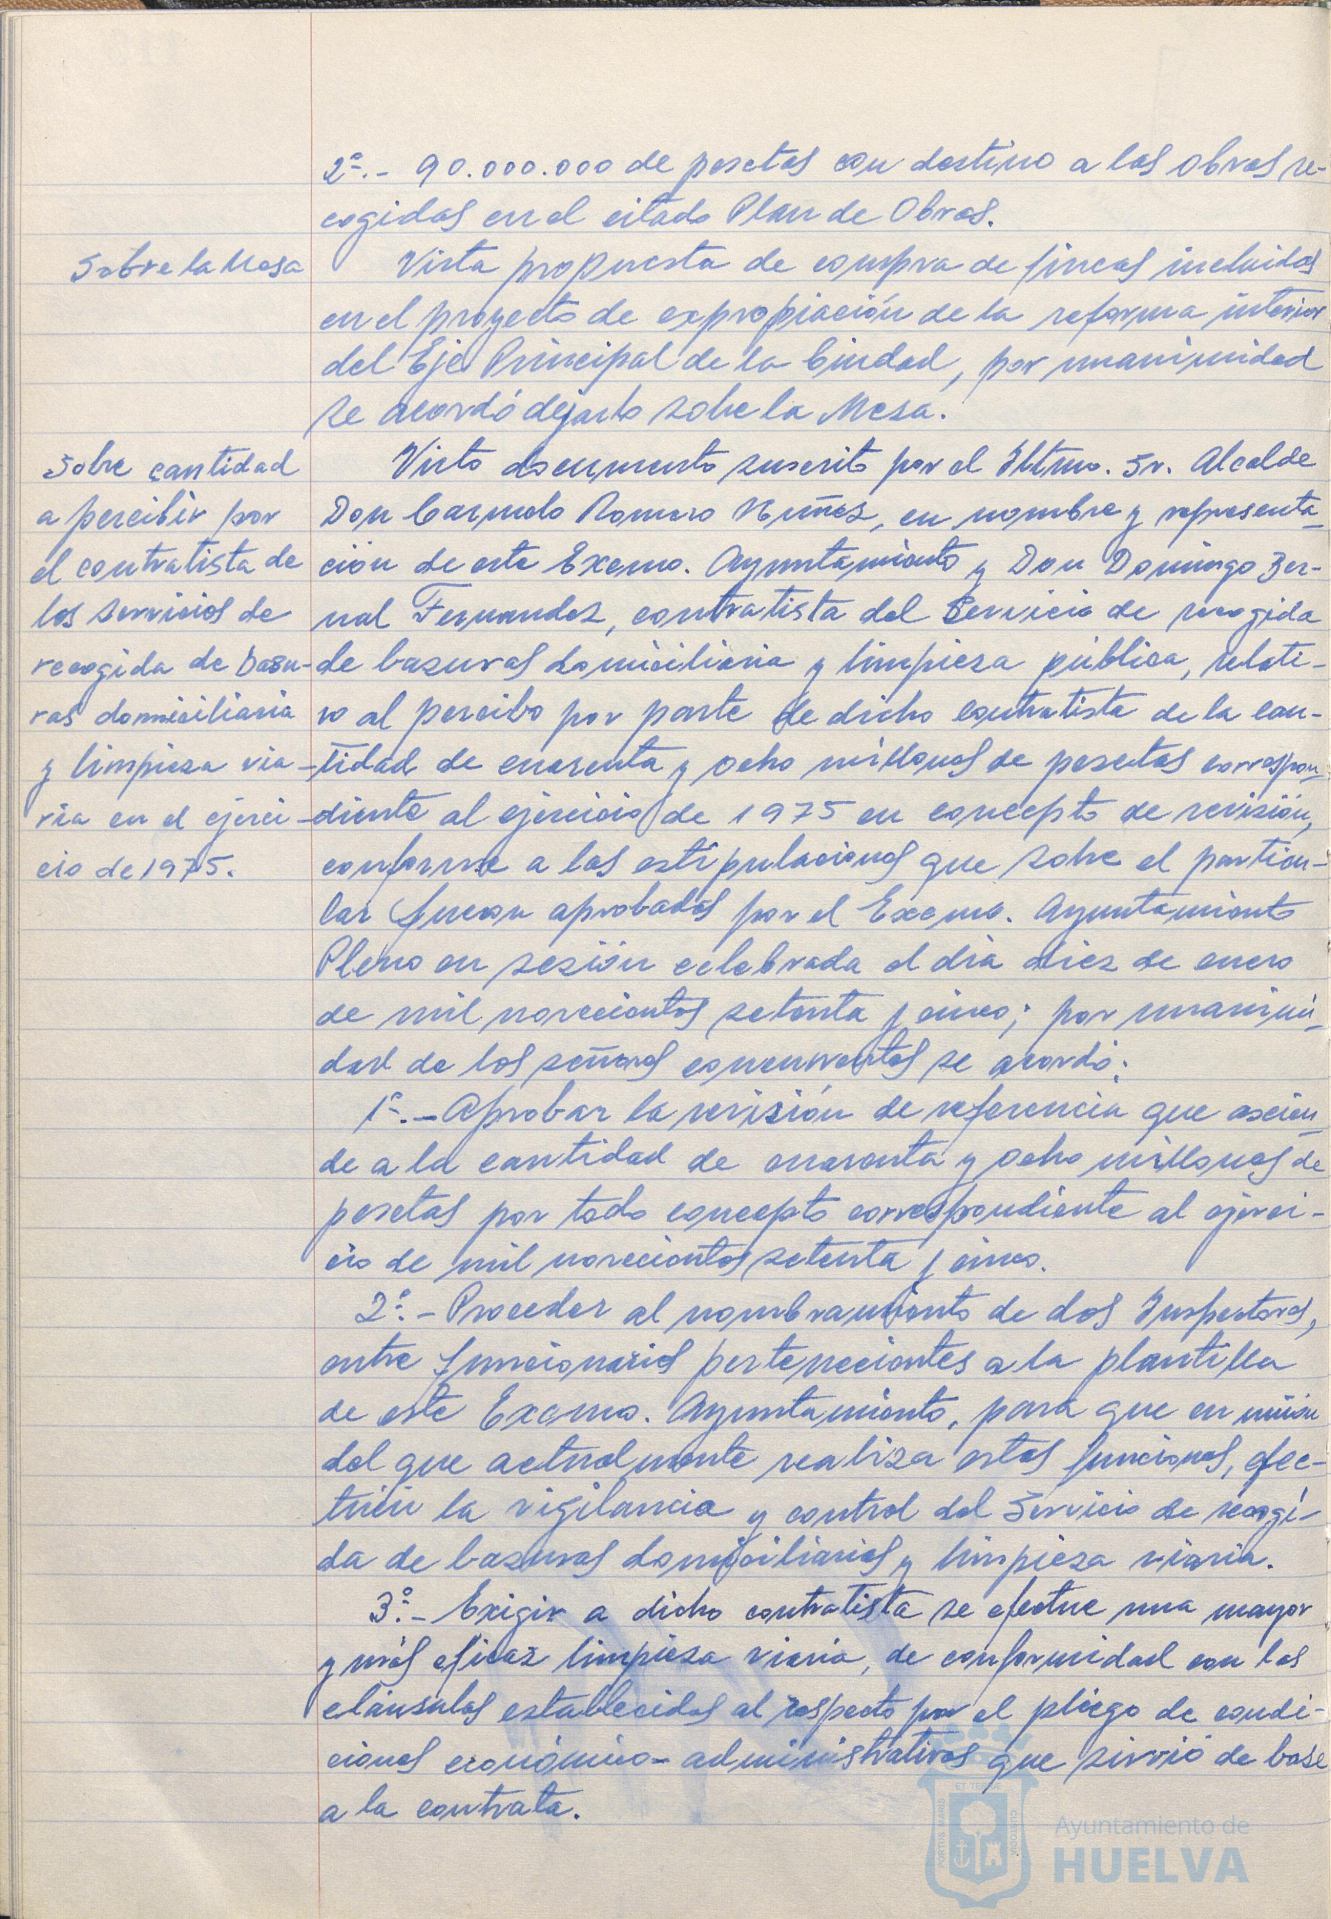 2º.- 90.000.000 de pesetas con destino a las obras re-
cogidas en el citado Plan de Obras.
Sobre la Mesa
Vista propuesta de compra de fincas incluidas
en el proyecto de expropiación de la reforma interior
del Eje Principal de la Ciudad, por unanimidad
se acordó dejarlo sobre la Mesa.
Sobre cantidad
a percibir por
el contratista de
los servicios de
recogida de basu-
ras domiciliaria
y limpieza via-
ria en el ejerci-
cio de 1975.
Visto documento suscrito por el Iltmo. Sr. Alcalde
Don Carmelo Romero Núñez, en nombre y representa-
ción de este Excmo. Ayuntamiento y Don Domingo Ber-
nal Fernandez, contratista del Servicio de recogida
de basuras domiciliaria y limpieza pública, relati-
vo al percibo por parte de dicho contratista de la can-
tidad de cuarenta y ocho millones de pesetas correspon-
diente al ejercicio de 1975 en concepto de revisión,
conforme a las estipulaciones que sobre el particu-
lar fueron aprobadas por el Excmo. Ayuntamiento
Pleno en sesión celebrada el dia diez de enero
de mil novecientos setenta y cinco; por unanimi-
dad de los señores concurrentes se acordó:
1º.- Aprobar la revisión de referencia que ascien-
de a la cantidad de cuarenta y ocho millones de
pesetas por todo concepto correspondiente al ejerci-
cio de mil novecientos setenta y cinco.
2º.- Proceder al nombramiento de dos Inspectores,
entre funcionarios pertenecientes a la plantilla
de este Excmo. Ayuntamiento, para que en unión
del que actualmente realiza estas funciones, efec-
túen la vigilancia y control del Servicio de recogi-
da de basuras domiciliarias y limpieza viaria.
3º.- Exigir a dicho contratista se efectue una mayor
y más eficaz limpieza viaria, de conformidad con las
cláusulas establecidas al respecto por el pliego de condi-
ciones económico-administrativas que sirvió de base
a la contrata.
Ayuntamiento de
HUELVA